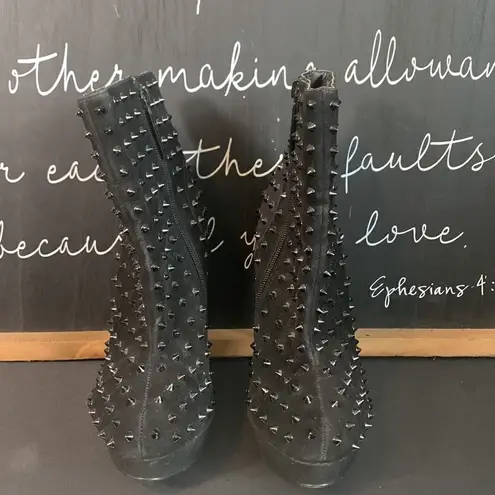 other making allowan
r each thei faults
because of y love.
Ephesians 4: